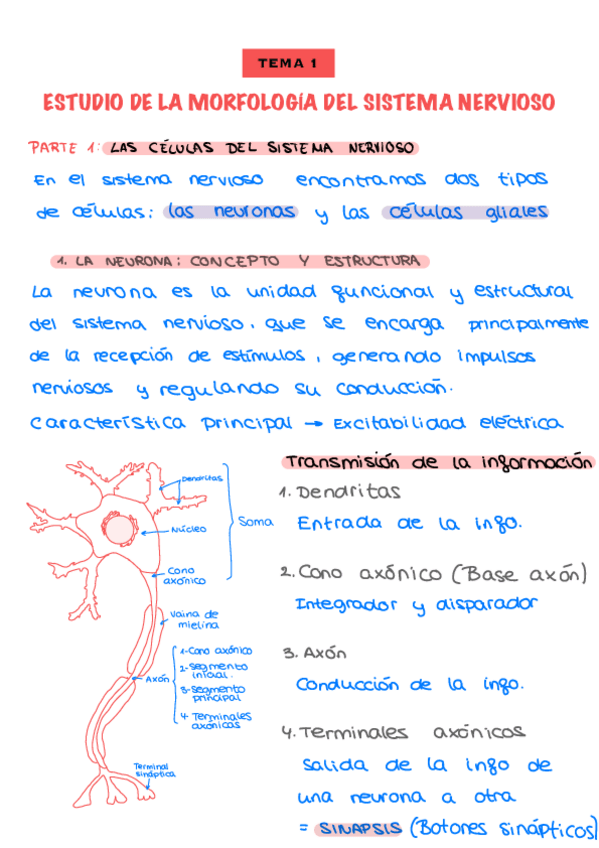 TEMA 1
ESTUDIO DE LA MORFOLOGÍA DEL SISTEMA NERVIOSO
PARTE 1: LAS CÉLULAS DEL SISTEMA NERVIOSO
En el sistema nervioso encontramos dos tipos
de células: las neuronas y las células gliales
1. LA NEURONA: CONCEPTO Y ESTRUCTURA
La neurona es la unidad funcional y estructural
del sistema nervioso, que se encarga principalmente
de la recepción de estímulos, generando impulsos
nerviosos y regulando su conducción.
Característica principal → Excitabilidad eléctrica
Dendritas
Núcleo
Soma
Cono
axónico
Vaina de
mielina
Axón
1-Cono axónico
2-Segmento
inicial
3-Segmento
principal
4-Terminales
axónicas
Terminal
sináptica
Transmisión de la información
1. Dendritas
Entrada de la info.
2. Cono axónico (Base axón)
Integrador y disparador
3. Axón
Conducción de la info.
4. Terminales axónicos
Salida de la info de
una neurona a otra
= SINAPSIS (Botones sinápticos)